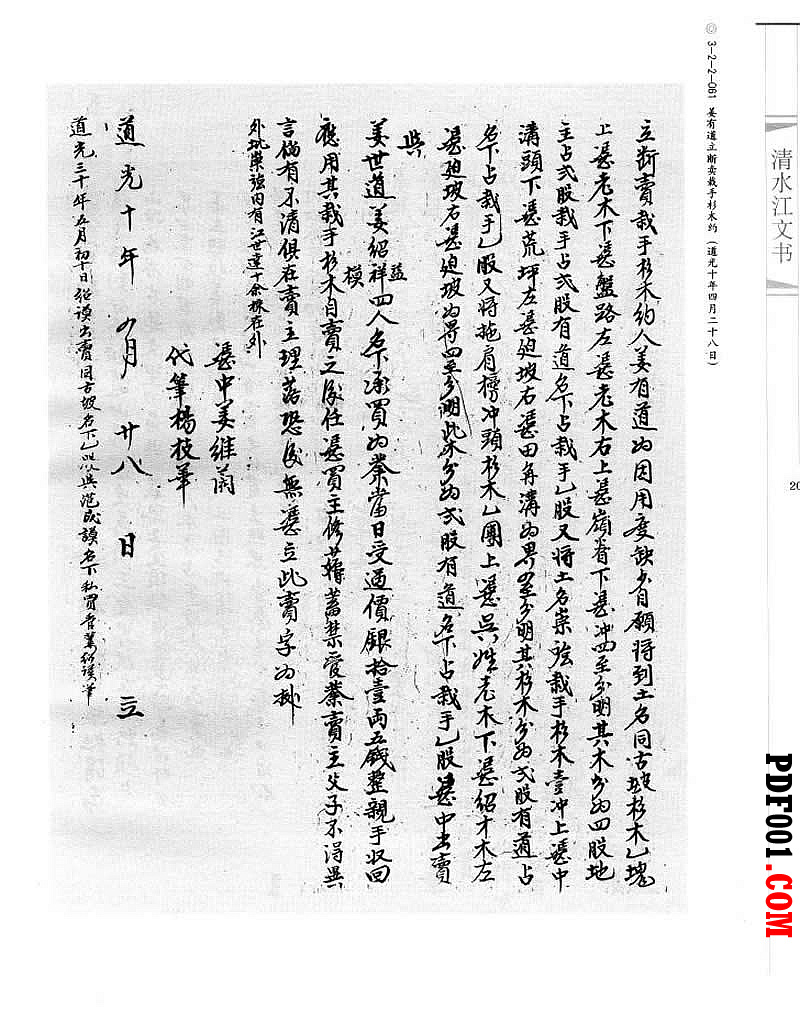 ◎ 3-2-2-061 姜有道立断卖栽手杉木约（道光十年四月二十八日）
清水江文书
立断賣栽手杉木約人姜有道为因用度缺少自願将到土名同古坡杉木乙塊
上憑老木下憑盤路左憑老木右上憑嶺脊下憑冲四至分明其木分为四股地
主占弍股栽手占弍股有道名下占栽手乙股又将土名崇 栽手杉木壹冲上憑中
溝頭下憑荒坪左憑廻坡右憑田角溝为界四至分明其杉木分为弍股有道占
名下占栽手乙股又将拖肩榜冲頭杉木乙團上憑吳姓老木下憑绍才木左
憑廻坡右憑廻坡为界四至分明此木分为弍股有道名下占栽手乙股憑中出賣
與
姜世道姜绍祥四人名下承買为業當日受过價銀拾壹両五錢整親手收回
益
模
應用其杉木自賣之後任憑買主修薅蓄禁管業賣主父子不得異
言倘有不清俱在賣主理落恐後無憑立此賣字为據
外批崇 内有江世達十余株在外
憑中姜維蕳
代筆楊枝華
道光十年 四月 廿八 日 立
道光三十年五月初十日绍谟出賣同古坡名下乙股與范成謨名下私買管業绍谟筆
20
PDF001.COM